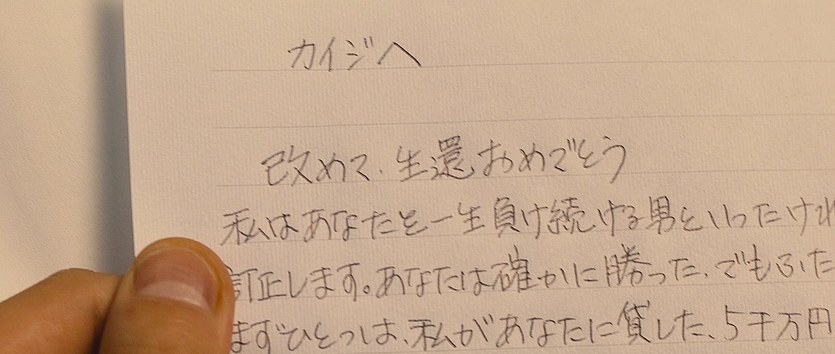 カイジへ
改めて、生還おめでとう
私はあなたを一生負け続ける男といったけれ
訂正します。あなたは確かに勝った、でもふた
まずひとつは、私があなたに貸した、5千万円